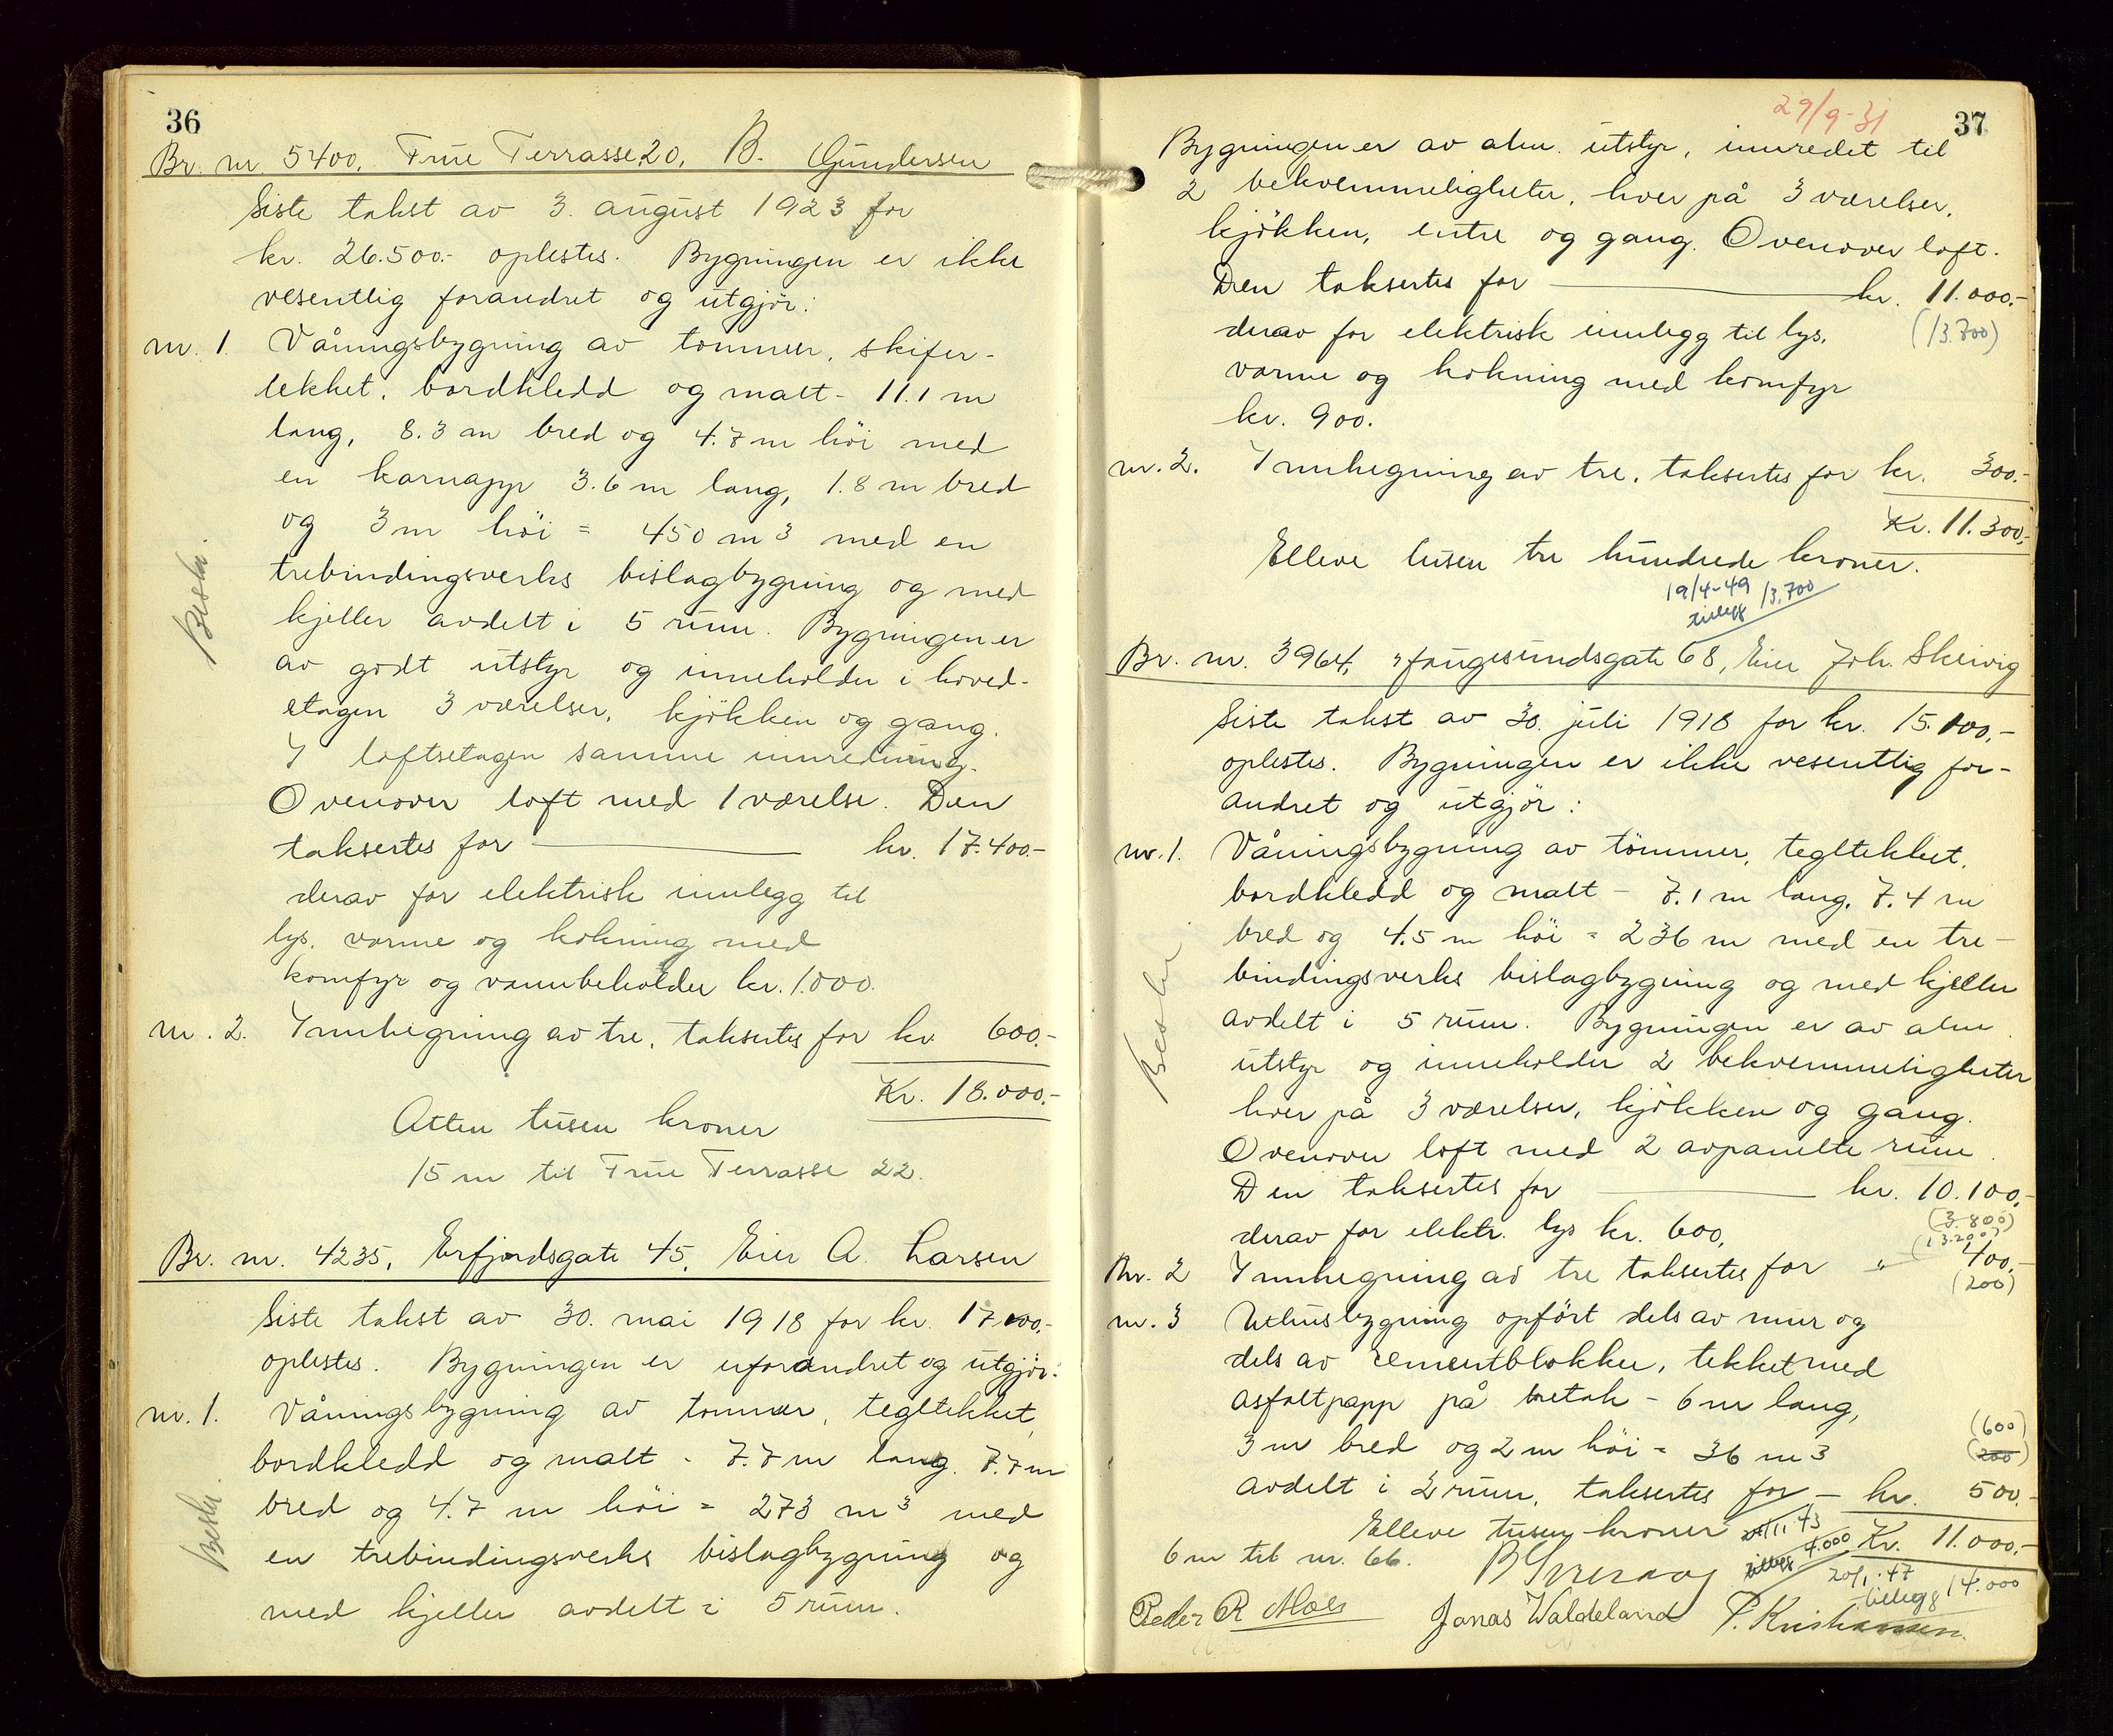 36
Br. nr. 5400, Frue Terrasse 20, B. Gundersen
Siste takst av 3. august 1923 for
kr. 26.500.- oplestes. Bygningen er ikke
vesentlig forandret og utgjør:
nr. 1. Våningsbygning av tømmer, skifer-
tekket, bordkledd og malt - 11.1 m
lang, 8.3 m bred og 4.7 m höi med
en karnapp 3.6 m lang, 1.8 m bred
og 3 m höi = 450 m3 med en
trebindingsverks bislagbygning og med
kjeller avdelt i 5 rum. Bygningen er
av godt utstyr og inneholder i hoved-
etagen 3 værelser, kjökken og gang.
I loftsetagen samme innredning.
Ovenover loft med 1 værelse. Den
taksertes for kr. 17.400.-
derav for elektrisk innlegg til
lys, varme og kokning med
komfyr og vannbeholder kr. 1.000.
nr. 2. Innhegning av tre, taksertes for kr. 600.-
Kr. 18.000.-
Atten tusen kroner
15 m til Frue Terrasse 22.
Beskr.
Br. nr. 4235, Erfjordsgate 45, Eier A. Larsen
Siste takst av 30. mai 1918 for kr.
oplestes. Bygningen er uforandret og utgjør:
nr. 1. Våningsbygning av tømmer, tegltekket,
bordkledd og malt - 7.7 m lang, 7.7 m
bred og 4.7 m höi = 273 m3 med
en trebindingsverks bislagbygning og
med kjeller avdelt i 5 rum.
Beskr.
29/9-31
37
Bygningen er av alm. utstyr, innredet til
2 bekvemmeligheter, hver på 3 værelser,
kjökken, entre og gang. Ovenover loft.
Den taksertes for kr. 11.000.-
derav for elektrisk innlegg til lys, (13.700)
varme og kokning med komfyr
kr. 900.
nr. 2. Innhegning av tre, taksertes for kr. 300.-
Kr. 11.300.-
Elleve tusen tre hundrede kroner.
19/4-49 13.700
tillegg
Br. nr. 3964, Haugesundsgate 68, Eier Joh. Skeivig
Siste takst av 30. juli 1918 for kr. 15.100.-
oplestes. Bygningen er ikke vesentlig for-
andret og utgjör:
nr. 1. Våningsbygning av tömmer, tegltekket,
bordkledd og malt - 7.1 m lang, 7.4 m
bred og 4.5 m höi = 236 m med en tre-
bindingsverks bislagbygning og med kjeller
avdelt i 5 rum. Bygningen er av alm.
utstyr og inneholder 2 bekvemmeligheter
hver på 3 værelser, kjökken og gang.
Ovenover loft med 2 avpanelte rum.
Den taksertes for kr. 10.100.-
derav for elektr. lys kr. 600, (3.800)
(13.200)
Nr. 2 Innhegning av tre taksertes for " 400.-
(200)
nr. 3 Uthusbygning opfört dels av mur og
dels av cementblokker, tekket med
asfaltpapp på tretak - 6 m lang,
3 m bred og 2 m höi = 36 m3
(600)
(200)
avdelt i 2 rum, taksertes for - kr. 500.-
Elleve tusen kroner Kr. 11.000.-
11.43 tillegg 4.000
20/1.47 tillegg 14.000
6 m til nr. 66.
Peder R Moes Jonas Waldeland P. Kristiansen
Beskr.